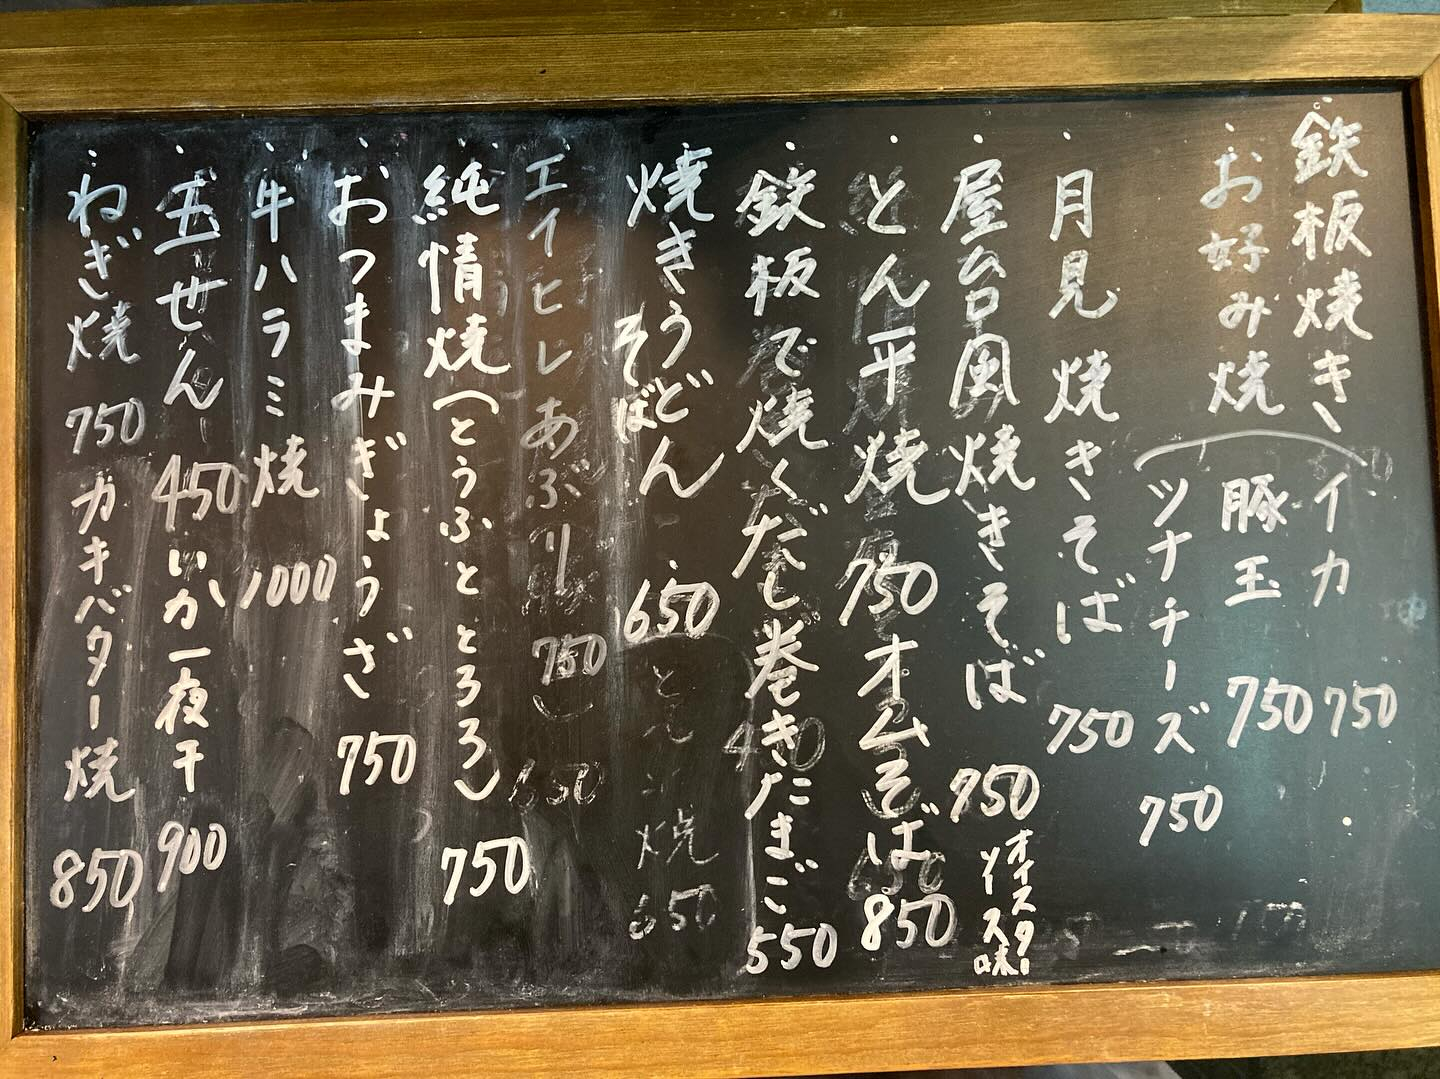 ・鉄板焼き、イカ 750
・お好み焼 豚玉 750
ツナチーズ 750
・月見焼きそば 750
・屋台風焼きそば 750 オイスターソース味
・とん平焼 750 オムそば 850
・鉄板で焼くだし巻きたまご 550
・焼きうどん 650
そば
・エイヒレあぶり 750
・純情焼(とうふととろろ) 750
・おつまみぎょうざ 750
・牛ハラミ焼 1000
・玉せん 450 いか一夜干 900
・ねぎ焼 750 カキバター焼 850